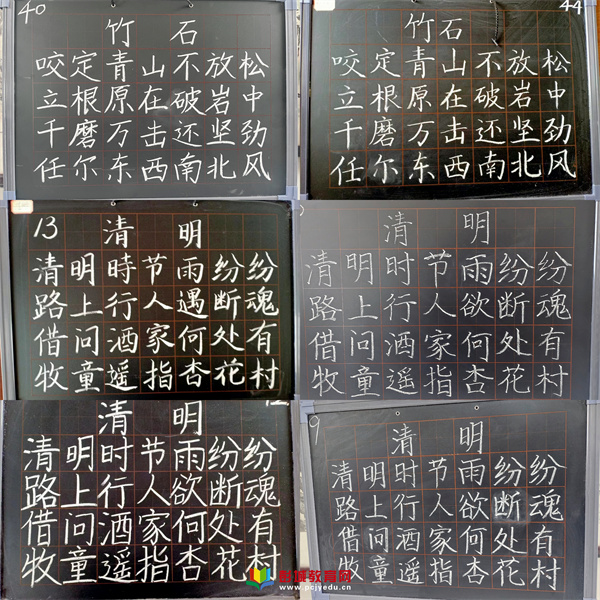 40
竹石
咬定青山不放松
立根原在破岩中
千磨万击还坚劲
任尔东西南北风
44
竹石
咬定青山不放松
立根原在破岩中
千磨万击还坚劲
任尔东西南北风
13
清明
清明時节雨纷纷
路上行人遇断魂
借问酒家何处有
牧童遥指杏花村
清明
清明时节雨纷纷
路上行人欲断魂
借问酒家何处有
牧童遥指杏花村
清明
清明时节雨纷纷
路上行人欲断魂
借问酒家何处有
牧童遥指杏花村
9
清明
清明时节雨纷纷
路上行人欲断魂
借问酒家何处有
牧童遥指杏花村
教育网
www.pcjyedu.cn